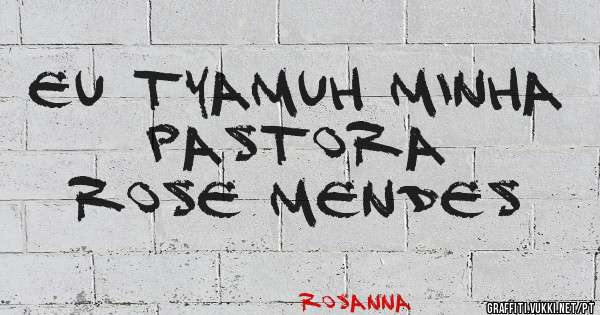 EU TYAMUH MINHA
PASTORA
ROSE MENDES
ROSANNA
GRAFFITI.VUKKI.NET/PT